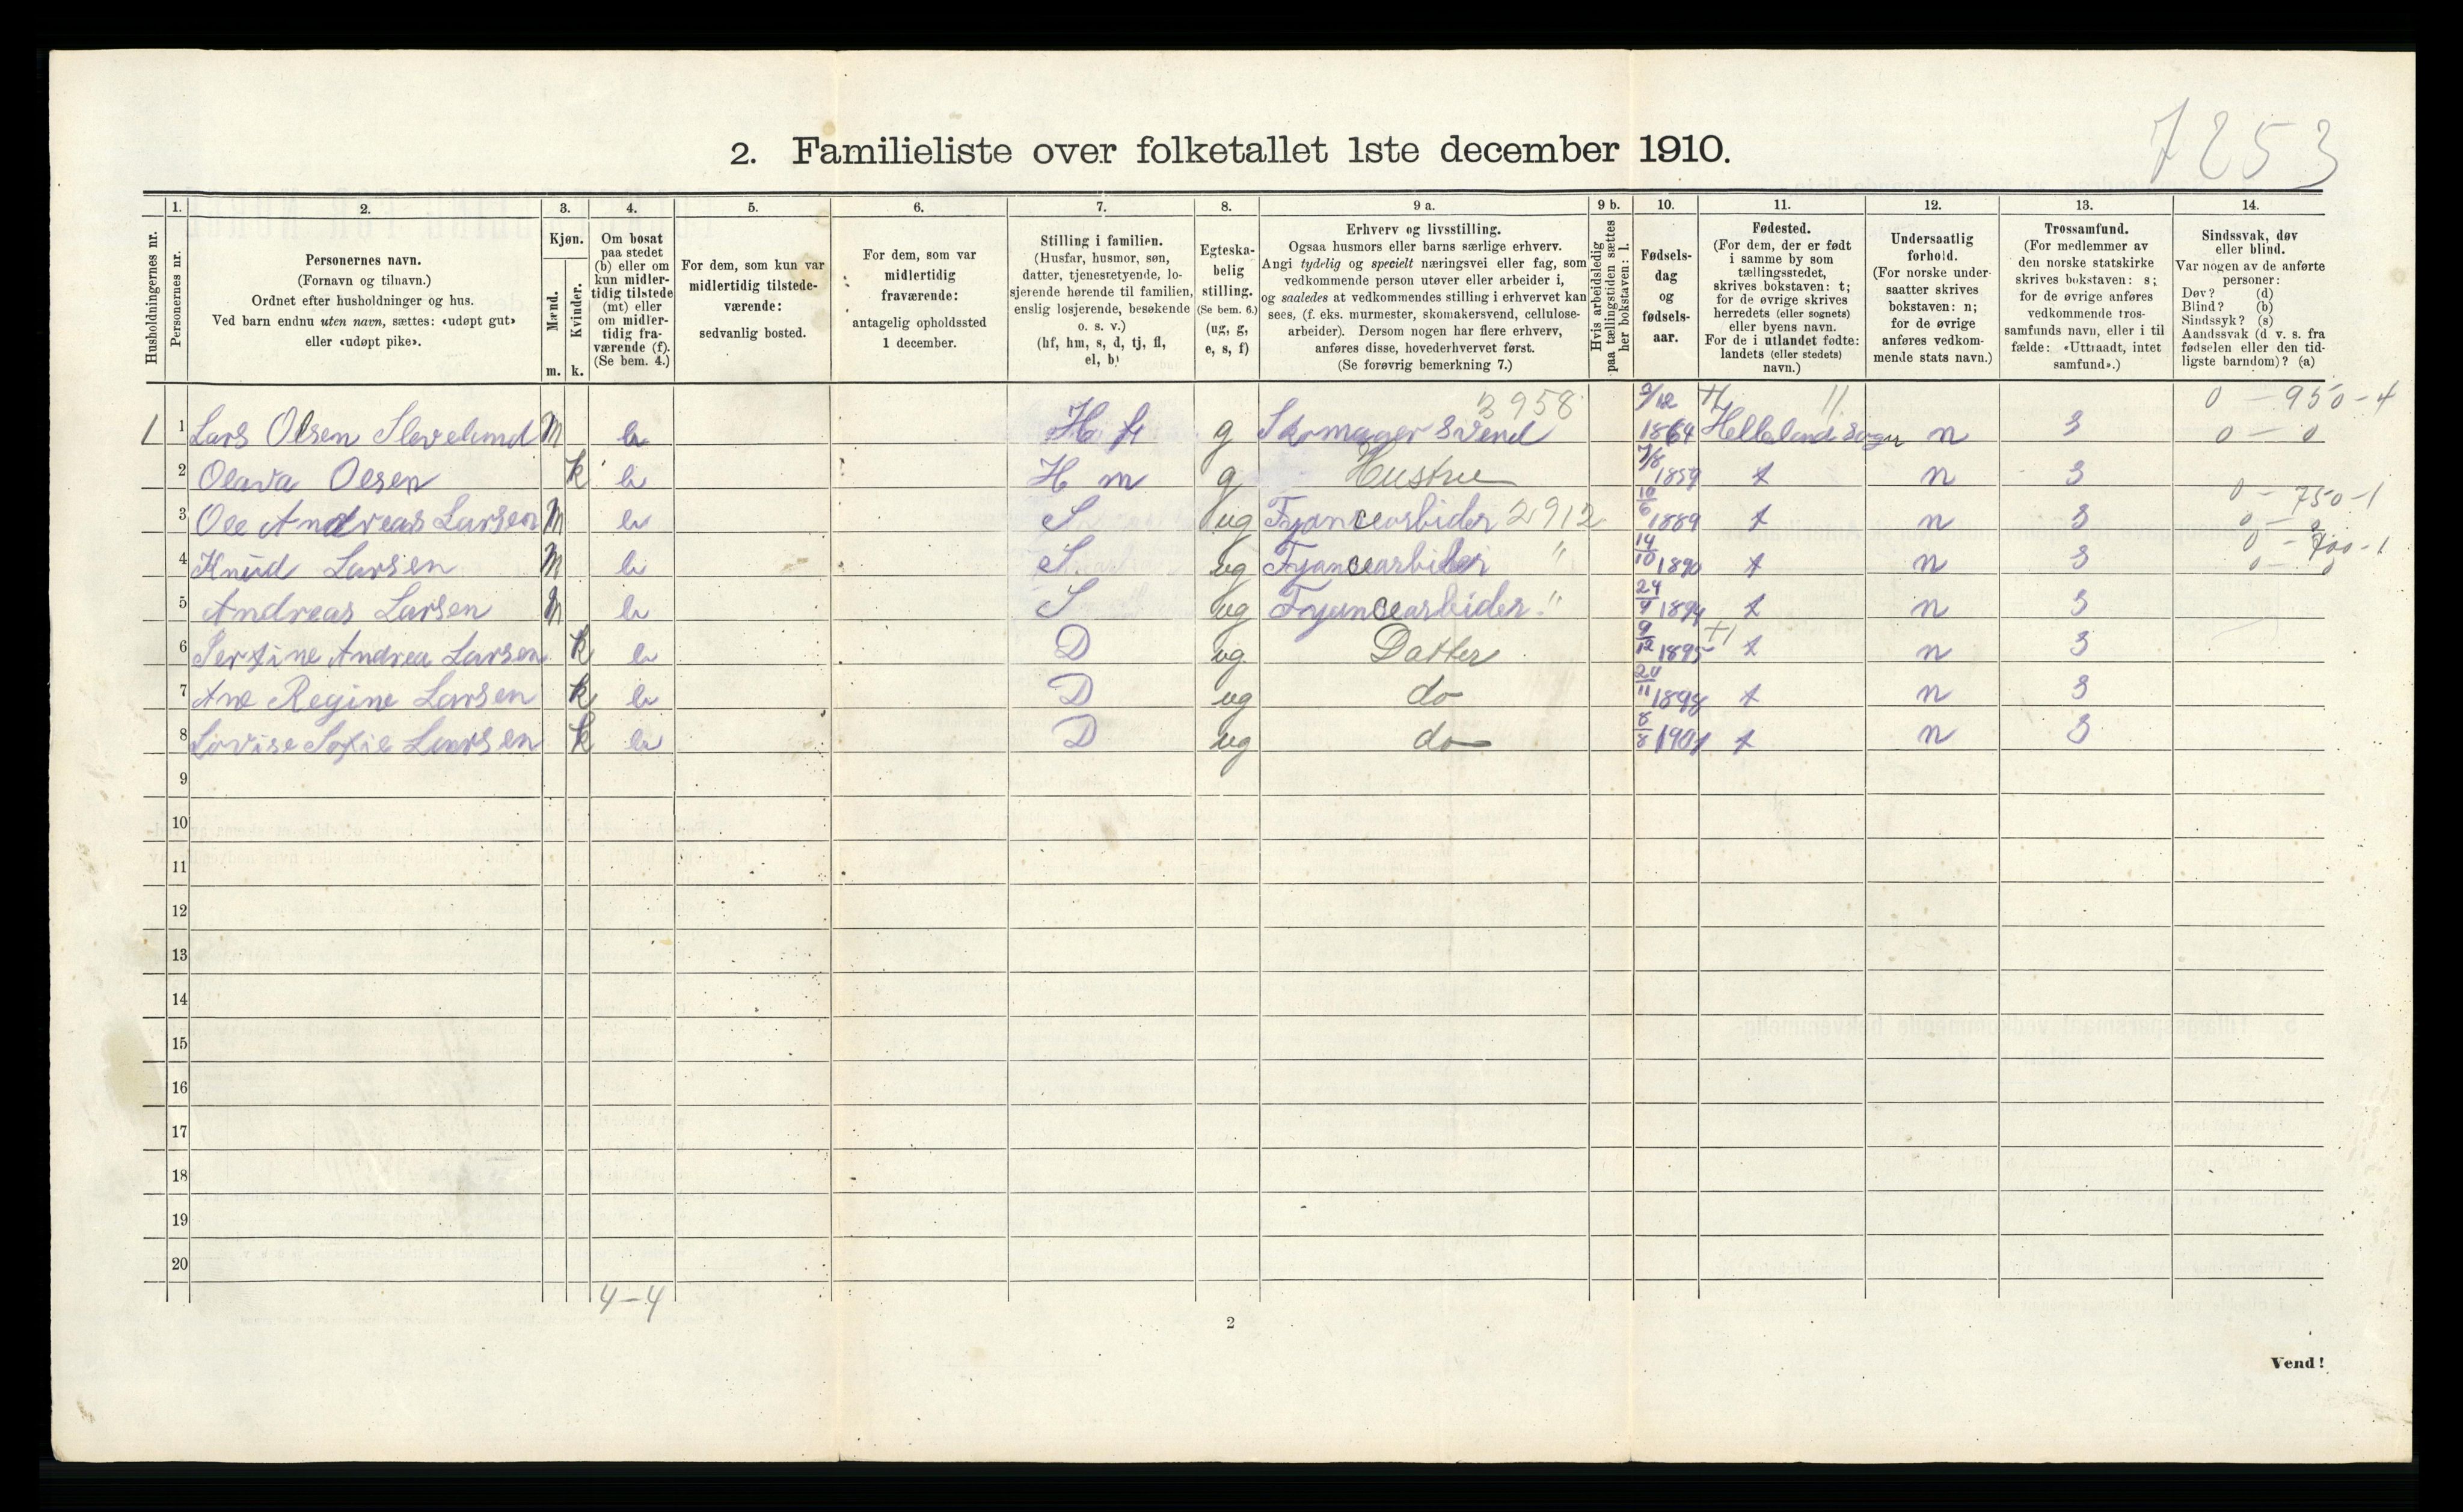 7253
2. Familieliste over folketallet 1ste december 1910.
Husholdningernes nr.
1.
Personernes nr.
2.
Personernes navn.
(Fornavn og tilnavn.)
Ordnet efter husholdninger og hus.
Ved barn endnu uten navn, sættes: «udøpt gut»
eller «udøpt pike».
3.
Kjøn.
Mænd.
Kvinder.
m. k.
4.
Om bosat
paa stedet
(b) eller om
kun midler-
tidig tilstede
(mt) eller
om midler-
tidig fra-
værende (f).
(Se bem. 4.)
5.
For dem, som kun var
midlertidig tilstede-
værende:
sedvanlig bosted.
6.
For dem, som var
midlertidig
fraværende:
antagelig opholdssted
1 december.
7.
Stilling i familien.
(Husfar, husmor, søn,
datter, tjenesretyende, lo-
sjerende hørende til familien,
enslig losjerende, besøkende
o. s. v.)
(hf, hm, s, d, tj, fl,
el, b)
8.
Egteska-
belig
stilling.
(Se bem. 6.)
(ug, g,
e, s, f)
9 a.
Erhverv og livsstilling.
Ogsaa husmors eller barns særlige erhverv.
Angi tydelig og specielt næringsvei eller fag, som
vedkommende person utøver eller arbeider i,
og saaledes at vedkommendes stilling i erhvervet kan
sees, (f. eks. murmester, skomakersvend, cellulose-
arbeider). Dersom nogen har flere erhverv,
anføres disse, hovederhvervet først.
(Se forøvrig bemerkning 7.)
9 b.
Hvis arbeidsledig
paa tællingstiden sættes
her bokstaven: l.
10.
Fødsels-
dag
og
fødsels-
aar.
11.
Fødested.
(For dem, der er født
i samme by som
tællingsstedet,
skrives bokstaven: t;
for de øvrige skrives
herredets (eller sognets)
eller byens navn.
For de i utlandet fødte:
landets (eller stedets)
navn.)
12.
Undersaatlig
forhold.
(For norske under-
saatter skrives
bokstaven: n;
for de øvrige
anføres vedkom-
mende stats navn.)
13.
Trossamfund.
(For medlemmer av
den norske statskirke
skrives bokstaven: s;
for de øvrige anføres
vedkommende tros-
samfunds navn, eller i til
fælde: «Uttraadt, intet
samfund».)
14.
Sindssvak, døv
eller blind.
Var nogen av de anførte
personer:
Døv? (d)
Blind? (b)
Sindssyk? (s)
Aandssvak (d. v. s. fra
fødselen eller den tid-
ligste barndom)? (a)
3958 11 0 - 950 - 4
1 1 Lars Olsen Slevelund M b H f g Skomager Svend 3/12 1864 Helleland sogn n S 0 - 0
2 Olava Olsen k b H m g Hustru 7/8 1859 t n S
0 - 750 - 1
3 Ole Andreas Larsen M b S ug Fyancearbider 2912 10/6 1889 t n S
4 Knud Larsen M b S ug Fyancearbider " 14/10 1890 t n S
5 Andreas Larsen M b S ug Fyancearbider " 24/4 1894 t n S
6 Sertine Andrea Larsen k b D ug Datter 9/12 1895 t n S
7 Ane Regine Larsen k b D ug do 20/11 1898 t n S
8 Lovise Sofie Larsen k b D ug do 8/8 1901 t n S
9
10
11
12
13
14
15
16
17
18
19
20
4-4
2
Vend!